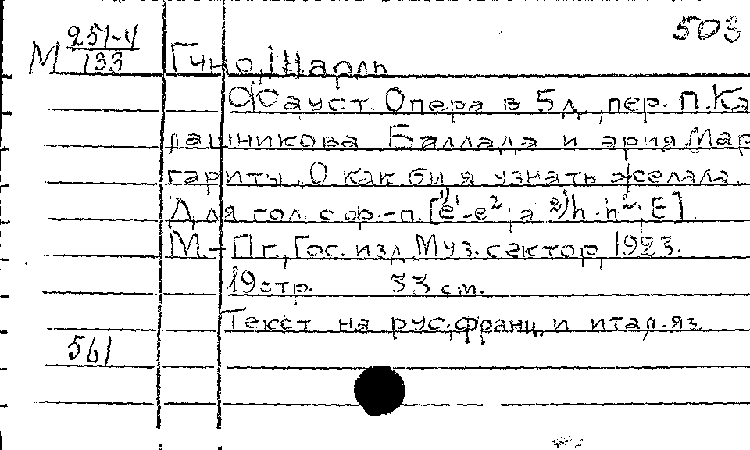 503
М 251-4/133
Гуно, Шарль
Фауст. Опера в 5 д., пер. П. Ка
лашникова. Баллада и ария Мар
гариты. О как бы я узнать желала.
Для гол. с фр.-п. [
М.-Пг., Гос. изд. Муз. сектор, 1923.
19 стр. 33 см.
Текст на рус., франц. и итал. яз.
561